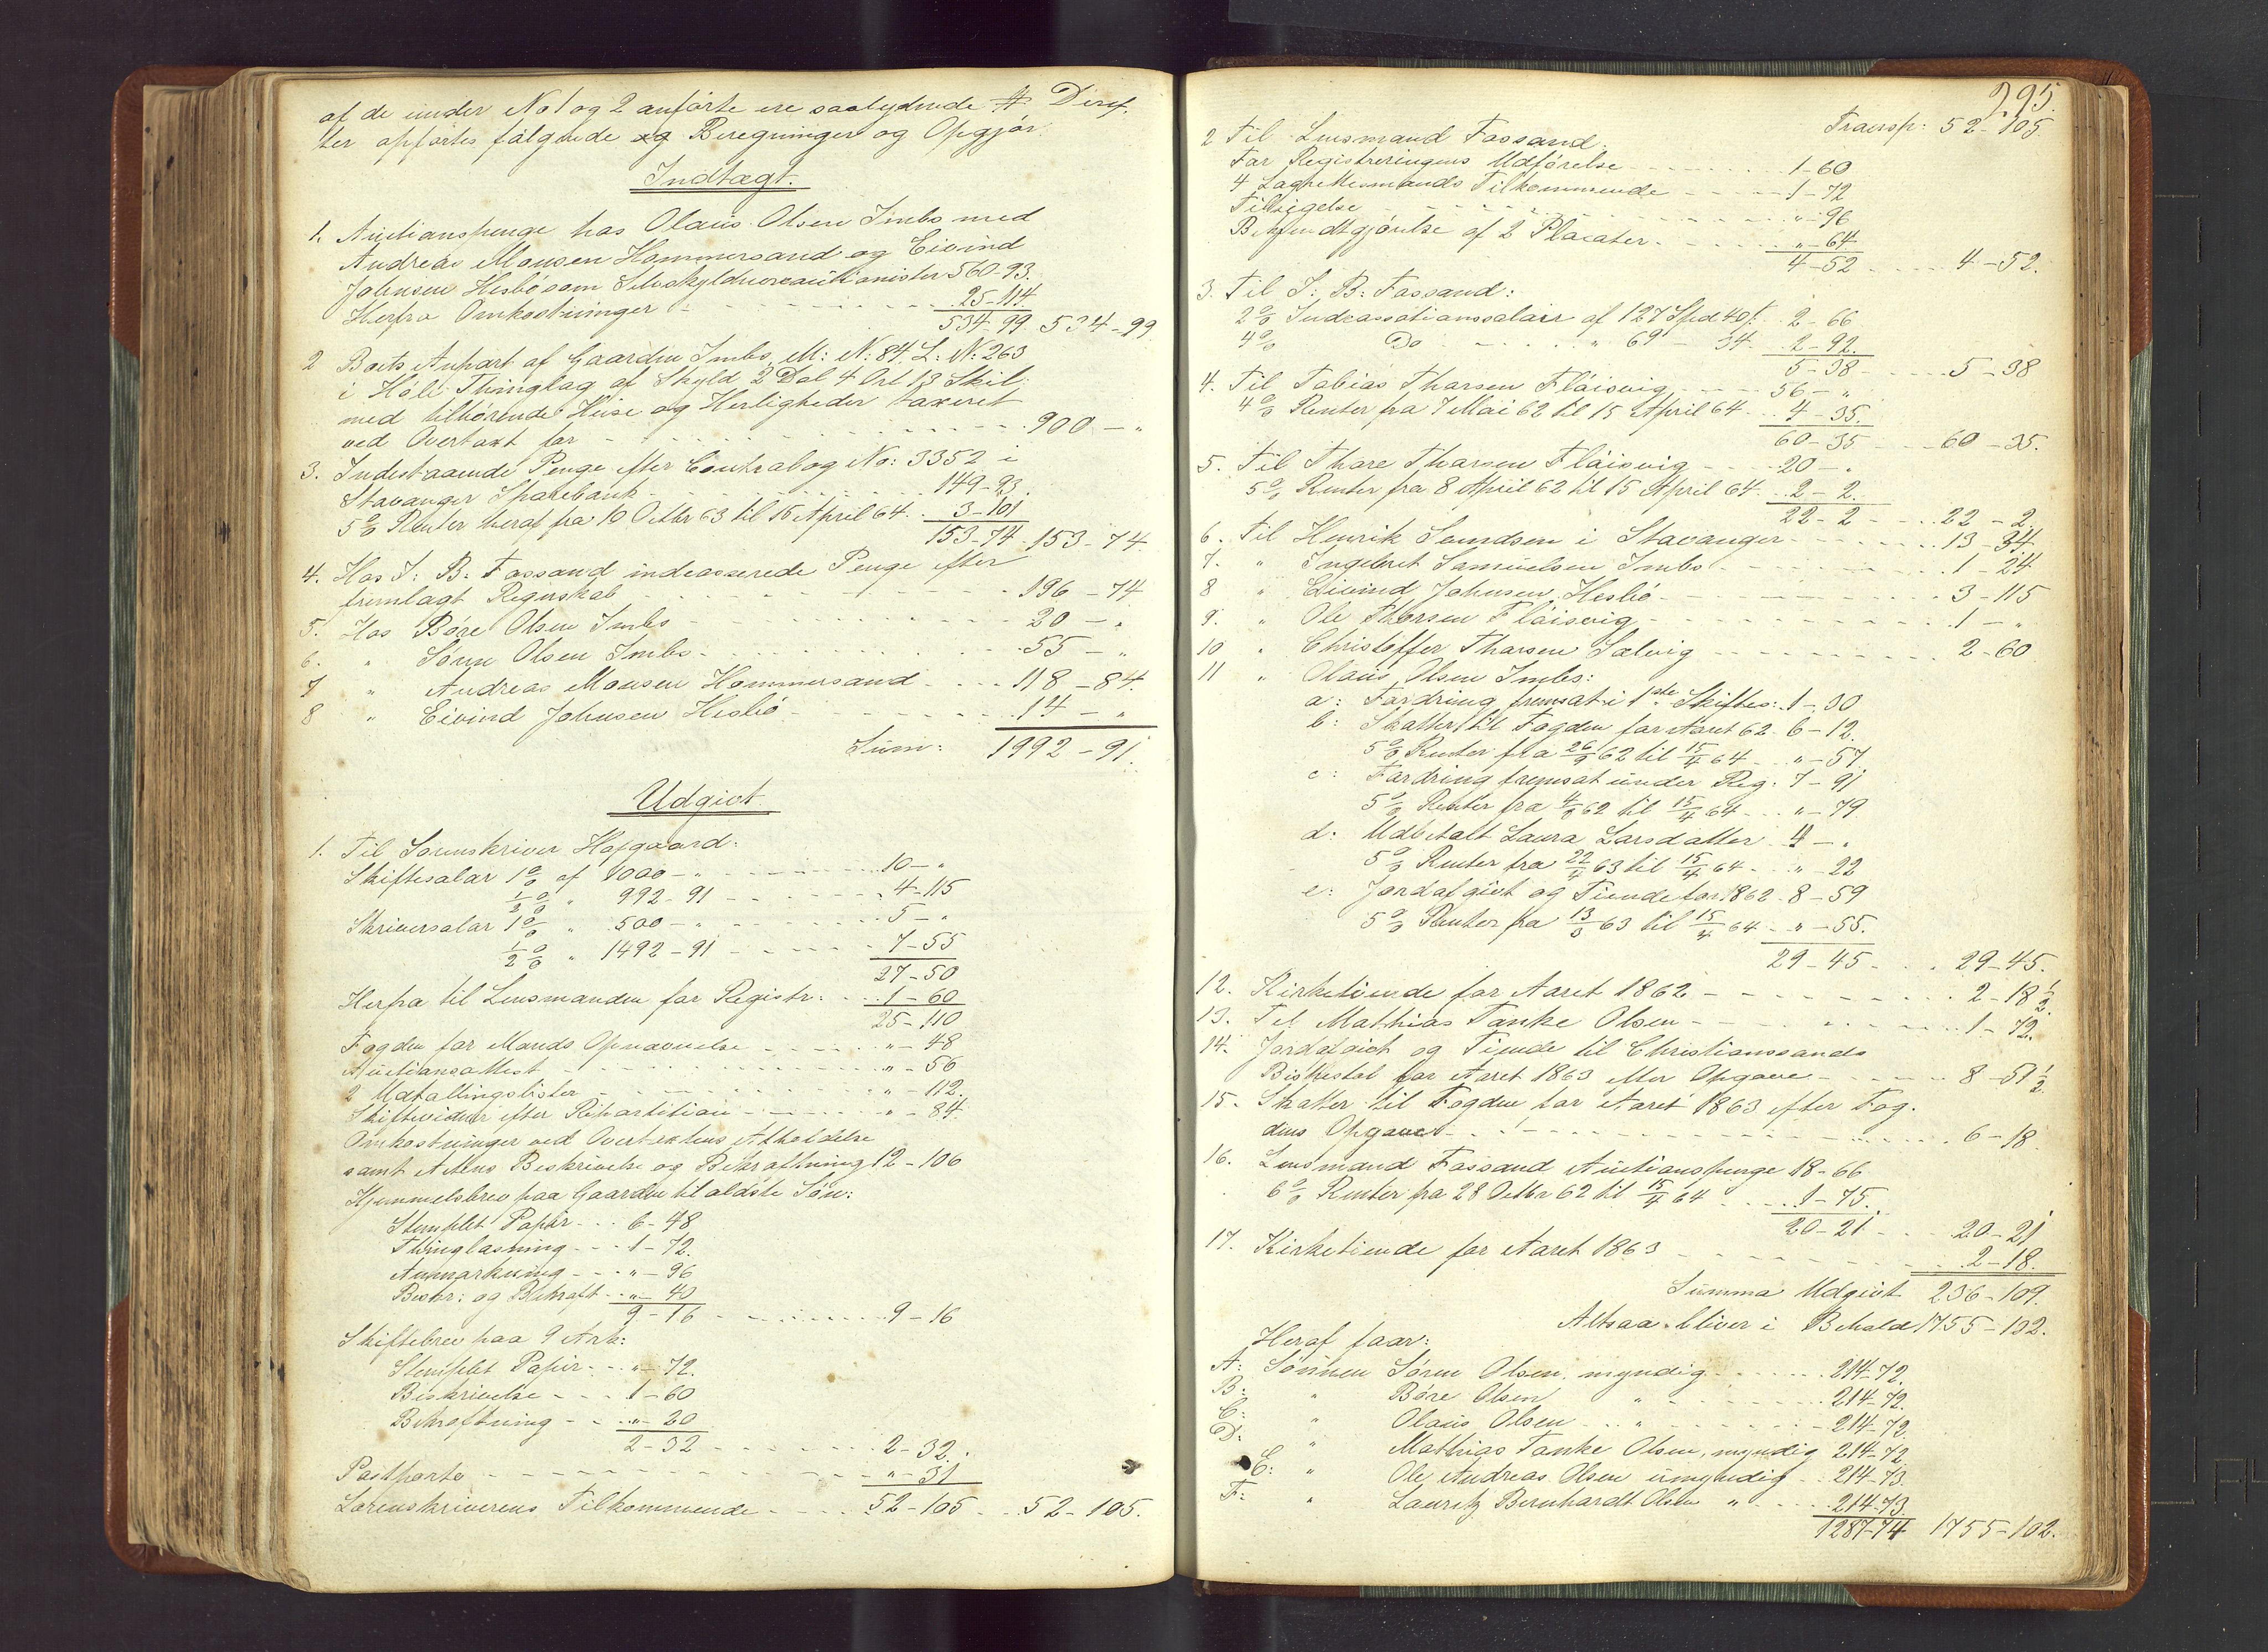 af de under No 1 og 2 anførte ere saalydende # Deref-
ter opførtes følgende og Beregninger og Opgjør.
Indtægt.
1. Auctionspenge hos Olaus Olsen Imbs med
Andreas Monsen Hommersand og Eivind
Johnsen Hesbö som Selvskyldnercautionister 560-93.
Herfra Omkostninger - 25-114.
534-99. 534-99
2 Boets Anpart af Gaarden Imbs, M: N: 84. L: N: 263
i Höle Thinglag af Skyld 2 Dal 4 Ort 13 Skil.
med tilhørende Huse og Herligheder taxeret
ved Overtaxt for - 900 - "
3. Indestaaende Penge efter Contrabog No: 3352 i
Stavanger Sparebank - 149-93.
5% Renter heraf fra 10 Octbr 63 til 15 April 64. 3-101
153-74. 153-74.
4. Hos J: B: Fossand indcasserede Penge efter
fremlagt Regnskab - 196-74
5. Hos Böre Olsen Imbs - 20 - "
6. " Sören Olsen Imbs - 55 - "
7 " Andreas Monsen Hommersand - 118-84.
8 " Eivind Johnsen Hesbö - 14 - "
Sum: 1992-91.
Udgivt.
1. Til Sorenskriver Hofgaard:
Skiftesalar 1% af 1000 - " - 10 - "
½% " 992-91 - 4-115
Skriversalar 1% " 500 - " - 5 - "
½% " 1492-91 - 7-55
27-50
Herfra til Lensmanden for Registr: - 1-60
25-110
Fogden for Mænds Opnævnelse - " - 48
Auctionsattest - " - 56
2 Udtallingslister - " - 112.
Skiftevidner efter Repartition - " - 84.
Omkostninger ved Overtaxtens Afholdelse
samt Aktens Beskrivelse og Bekræftning 12-106
Hjemmelsbrev paa Gaarden til ældste Søn:
Stemplet Papir - 6-48
Thinglæsning - 1-72.
Anmærkning - " - 96
Beskr: og Bekræft - " - 40
9-16 - 9-16
Skiftebrev paa 9 Ark:
Stemplet Papir - " - 72.
Beskrivelse - 1-60
Bekræftning - " - 20
2-32 - 2-32.
Postporto - " - 31
Sorenskriverens Tilkommende - 52-105 - 52-105.
295.
Transp: 52-105.
2 Til Lensmand Fossand.
For Registreringens Udførelse - 1-60
4 Lagrettesmænds Tilkommende - 1-72
Tilsigelse - " - 96
Bekjendtgjørelse af 2 Placater - " - 64
4-52 - 4-52.
3. Til J: B: Fossand:
2% Indcassationssalair af 127 Spd 40 s. 2-66
4% Do - " 69 - 34. 2-92.
5-38 - 5-38
4. Til Tobias Tharsen Flöisvig - 56 - "
4% Renter fra 7 Mai 62 til 15 April 64 - 4-35.
60-35 - 60-35.
5. Til Thore Tharsen Flöisvig - 20 - "
5% Renter fra 8 April 62 til 15 April 64 - 2-2.
22-2 - 22-2.
6. Til Henrik Svendsen i Stavanger - 13-34.
7. " Ingebret Samuelsen Imbs - 1-24
8 " Eivind Johnsen Hesbö - 3-115
9. " Ole Tharsen Flöisvig - 1 - "
10 " Christoffer Tharsen Solvig - 2-60
11 " Olaus Olsen Imbs:
a: Fordring fremsat i 1ste Skiftes: 1-30
b: Skatter til Fogden for Aaret 62. 6-12.
5% Renter fra 26/9 62 til 15/4 64 - " - 57.
c: Fordring fremsat under Reg: 7-91
5% Renter fra 4/3 62 til 15/4 64 - " - 79
d: Udbetalt Laura Larsdatter 4 - "
5% Renter fra 22/4 63 til 15/4 64 - " - 22
e: Jordafgivt og Tiende for 1862. 8-59
5% Renter fra 13/3 63 til 15/4 64 - " - 55.
29-45 - 29-45.
12. Kirketiende for Aaret 1862 - 2-18½
13. Til Mathias Tanke Olsen - 1-72.
14. Jordafgivt og Tiende til Christianssands
Bispestol for Aaret 1863 efter Opgave - 8-51½
15. Skatter til Fogden for Aaret 1863 efter Fog-
dens Opgave - 6-18.
16. Lensmand Fossand Auctionspenge 18-66
6% Renter fra 28 Octbr 62 til 15/4 64 - 1-75.
20-21 - 20-21
17. Kirketiende for Aaret 1863 - 2-18.
Summa Udgivt 236-109.
Altsaa bliver i Behold 1755-102.
Heraf faar:
A: Sönnen Sören Olsen, myndig - 214-72.
B: " Böre Olsen " - 214-72.
C: " Olaus Olsen " - 214-72.
D: " Mathias Tanke Olsen, myndig 214-72.
E: " Ole Andreas Olsen umyndig - 214-73.
F: " Lauritz Bernhardt Olsen " - 214-73.
1287-74 1755-102.